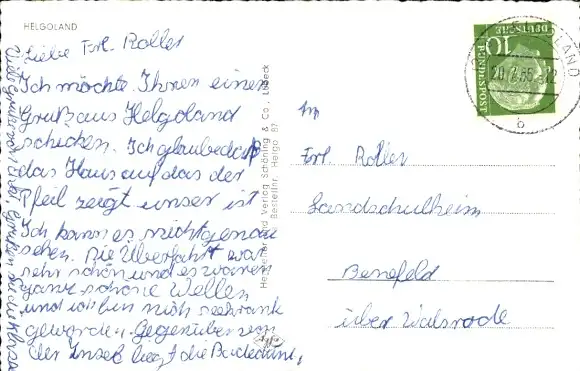 HELGOLAND
Liebe Frl. Roller
Ich möchte Ihnen einen
Gruß aus Helgoland
schicken. Ich glaube daß
das Haus auf das der
Pfeil zeigt unser ist
Ich kann es nicht genau
sehen. Die Überfahrt war
sehr schön und es waren
ganz schöne Wellen
und ich bin nich seekrank
geworden. Gegenüber von
der Insel liegt die
Viele Grüße von
Schöning & Co., Lübeck
Bestellnr. Helgo 87
DEUTSCHE
BUNDESPOST
10
HELGOLAND
b
An
Frl. Roller
Landschulheim
Benefeld
über Walsrode